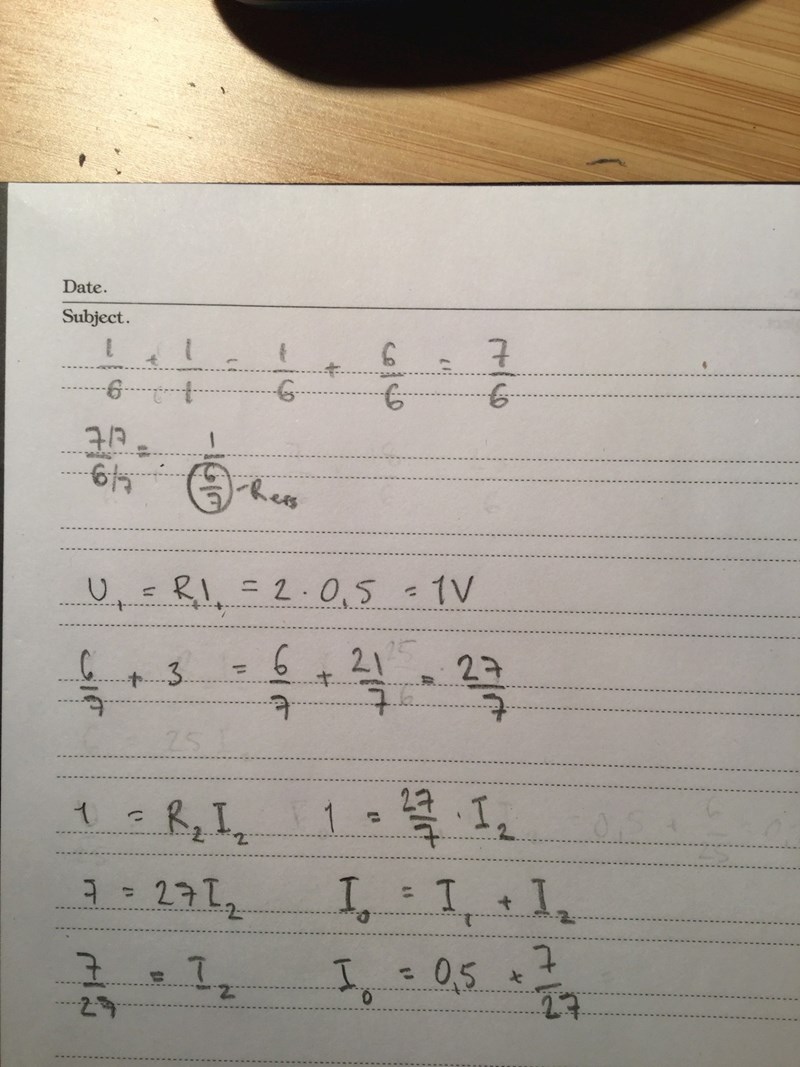 Date.
Subject.
1/6 + 1/1 = 1/6 + 6/6 = 7/6
7/7 / 6/7 = 1 / (6/7) - Rers
U₁ = R₁I₁ = 2 · 0,5 = 1V
6/7 + 3 = 6/7 + 21/7 = 27/7
1 = R₂I₂ 1 = 27/7 · I₂
7 = 27I₂ I₀ = I₁ + I₂
7/27 = I₂ I₀ = 0,5 + 7/27